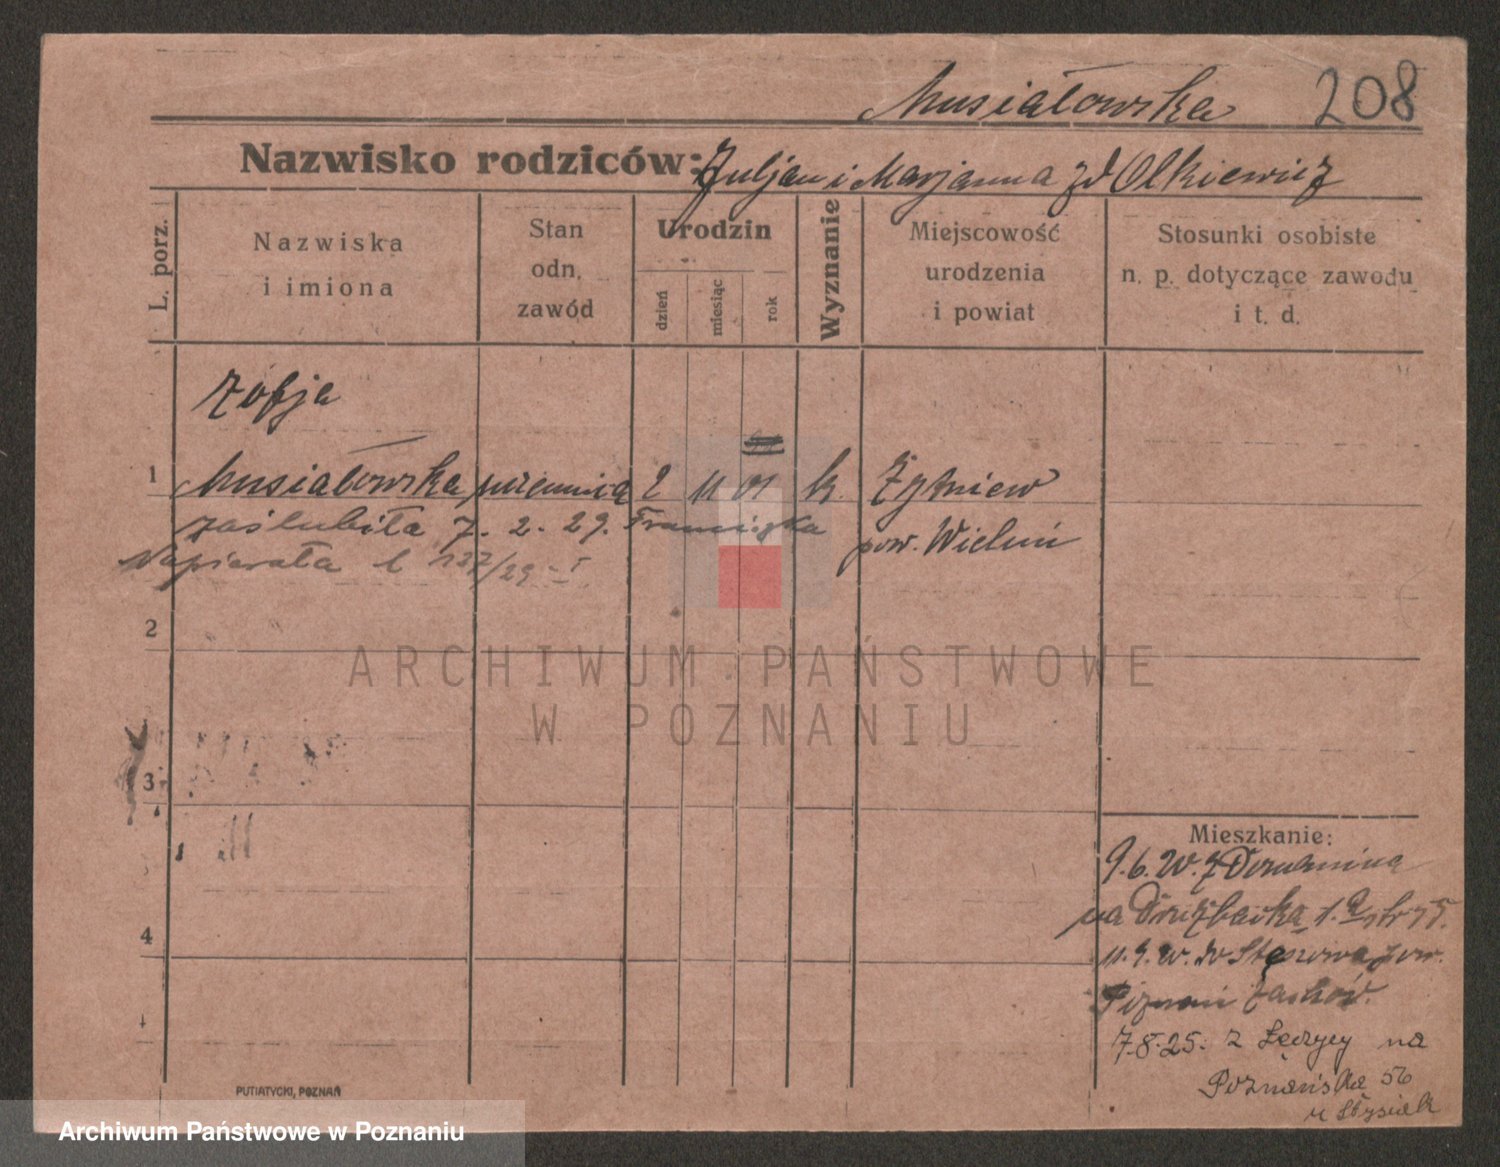 Musiałowska 208
Nazwisko rodziców: Juljan i Marjanna zd Olkiewicz
L. porz.
Nazwiska i imiona
Stan odn. zawód
Urodzin
dzień
miesiąc
rok
Wyznanie
Miejscowość urodzenia i powiat
Stosunki osobiste n. p. dotyczące zawodu i t. d.
Zofja
1 Musiałowska 2 11 01 k.
zaślubiła 7. 2. 29. Franciszka
pow. Wieluń
Napierała l 137/29 I
2
3
4
ARCHIWUM PAŃSTWOWE
W POZNANIU
Mieszkanie:
9.6.20. z
na 1.
11.9.20. do pow.
Poznań Zachód.
7.8.25. z na
Poznańska 56
u
PUTIATYCKI, POZNAŃ
Archiwum Państwowe w Poznaniu